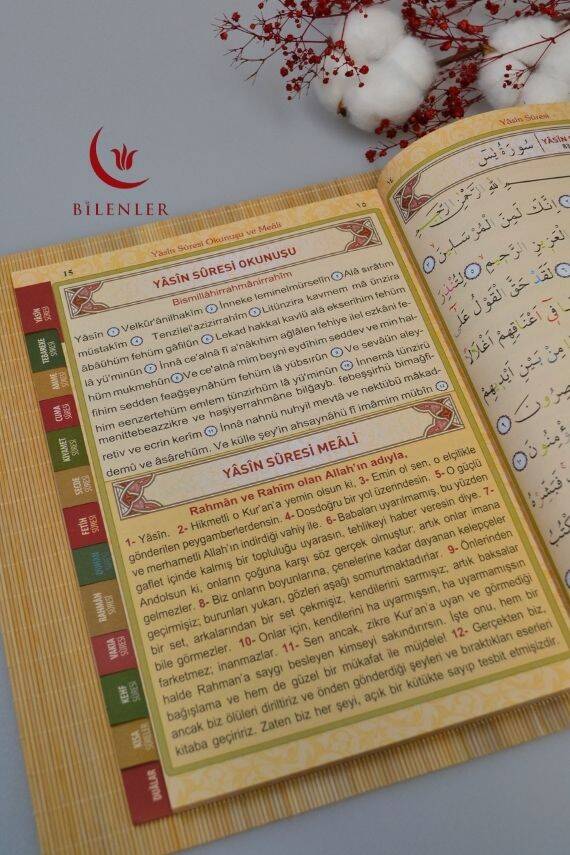 BİLENLER
Yâsîn Sûresi Okunuşu ve Meâli
15
١٥
YÂSÎN SÛRESİ OKUNUŞU
Bismillâhirrahmânirrahîm
Yâsîn Velkür'ânilhakîm İnneke leminelmürselîn Alâ sırâtım
müstakîm Tenzîlel'azîzirrahîm Litünzira kavmem mâ ünzira
âbâühüm fehüm gâfilûn Lekad hakkal kavlü alâ ekserihim fehüm
lâ yü'minûn İnnâ ce'alnâ fî a'nâkıhim ağlâlen fehiye ilel ezkâni fe-
hüm mukmehûn Ve ce'alnâ mim beyni eydîhim seddev ve min hal-
fihim sedden feağşeynâhüm fehüm lâ yübsırûn Ve sevâün aley-
him eenzertehüm emlem tünzirhüm lâ yü'minûn İnnemâ tünziru
menittebeazzikre ve haşiyerrahmâne bilğayb. febeşşirhü bimağfi-
retiv ve ecrin kerîm İnnâ nahnü nuhyil mevtâ ve nektübü mâkad-
demû ve âsârehüm. Ve külle şey'in ahsaynâhü fî imâmim mübîn
YÂSÎN SÛRESİ MEÂLİ
Rahmân ve Rahîm olan Allah'ın adıyla,
1- Yâsîn. 2- Hikmetli o Kur'an'a yemin olsun ki, 3- Emin ol sen, o elçilikle
gönderilen peygamberlerdensin. 4- Dosdoğru bir yol üzerindesin. 5- O güçlü
ve merhametli Allah'ın indirdiği vahiy ile. 6- Babaları uyarılmamış, bu yüzden
gaflet içinde kalmış bir topluluğu uyarasın, tehlikeyi haber veresin diye. 7-
Andolsun ki, onların çoğuna karşı söz gerçek olmuştur; artık onlar imana
gelmezler. 8- Biz onların boyunlarına, çenelerine kadar dayanan kelepçeler
geçirmişiz; burunları yukarı, gözleri aşağı somurtmaktadırlar. 9- Önlerinden
bir set, arkalarından bir set çekmişiz, kendilerini sarmışız; artık baksalar
bile görmezler. 10- Onlar için, kendilerini ha uyarmışsın, ha uyarmamışsın
farketmez; inanmazlar. 11- Sen ancak, zikre Kur'an'a uyan ve görmediği
halde Rahman'a saygı besleyen kimseyi sakındırırsın. İşte onu, hem bir
bağışlama ve hem de güzel bir mükafat ile müjdele! 12- Gerçekten biz,
ancak biz ölüleri diriltiriz ve önden gönderdiği şeyleri ve bıraktıkları eserleri
kitaba geçiririz. Zaten biz her şeyi, açık bir kütükte sayıp tesbit etmişizdir.
YÂSÎN SÛRESİ
TEBAREKE SÛRESİ
AMME SÛRESİ
CUMA SÛRESİ
KIYAMET SÛRESİ
SECDE SÛRESİ
FETİH SÛRESİ
DUHAN SÛRESİ
RAHMÂN SÛRESİ
VAKIA SÛRESİ
KEHF SÛRESİ
KISA SÛRELER
DUÂLAR
Yâsîn Sûresi
YÂSÎN
سُورَةُ يٰسٓ
اللهِ الرَّحْمٰنِ الرَّحِيمِ
اِنَّكَ لَمِنَ الْمُرْسَلِينَ
لْعَزِيزِ الرَّحِيمِ
لَقَدْ حَقَّ الْقَوْلُ عَلٰٓى
فِٓي اَعْنَاقِهِمْ اَغْلَالًا
مِنْ بَيْنِ اَيْدِيهِمْ